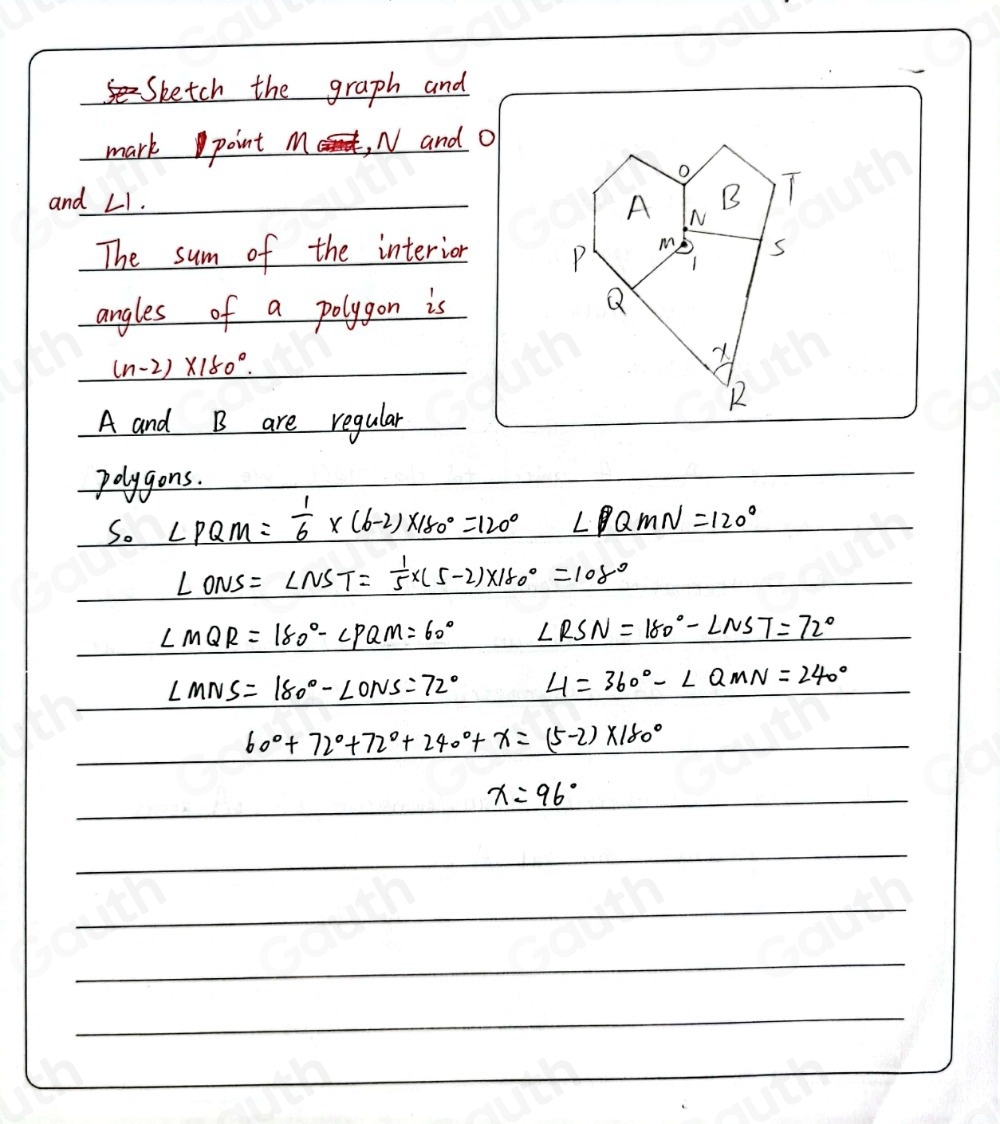 Sketch the graph and
mark point M, N and O
and ∠1.
The sum of the interior
angles of a polygon is
(n-2)×180°.
A and B are regular
polygons.
So ∠PQM = 1/6 × (6-2)×180° = 120° ∠QMN = 120°
∠ONS = ∠NST = 1/5×(5-2)×180° = 108°
∠MQR = 180° - ∠PQM = 60° ∠RSN = 180° - ∠NST = 72°
∠MNS = 180° - ∠ONS = 72° ∠1 = 360° - ∠QMN = 240°
60° + 72° + 72° + 240° + x = (5-2)×180°
x = 96°
O
A
B
T
N
M
1
S
P
Q
x
R
Gauth